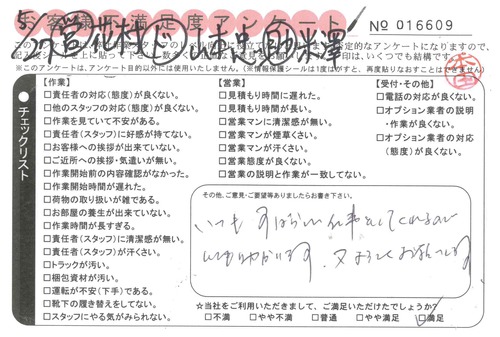 お客様満足度アンケート
№ 016609
※このアンケートは、アンケート目的以外には使用いたしません。（※情報保護シールは1度はがすと、再度貼りなおすことはできません）
●チェックリスト
【作業】
□責任者の対応（態度）が良くない。
□他のスタッフの対応（態度）が良くない。
□作業を見ていて不安がある。
□責任者（スタッフ）に好感が持てない。
□お客様への挨拶が出来ていない。
□ご近所への挨拶・気遣いが無い。
□作業開始前の内容確認がなかった。
□作業開始時間が遅れた。
□荷物の取り扱いが雑である。
□お部屋の養生が出来ていない。
□作業時間が長すぎる。
□責任者（スタッフ）に清潔感が無い。
□責任者（スタッフ）が汗くさい。
□トラックが汚い。
□梱包資材が汚い。
□運転が不安（下手）である。
□靴下の履き替えをしてない。
□スタッフにやる気がみられない。
【営業】
□見積もり時間に遅れた。
□見積もり時間が長い。
□営業マンに清潔感が無い。
□営業マンが煙草くさい。
□営業マンが汗くさい。
□営業態度が良くない。
□営業の説明と作業が一致してない。
【受付・その他】
□電話の対応が良くない。
□オプション業者の説明
・作業が良くない。
□オプション業者の対応
（態度）が良くない。
その他、ご意見・ご要望等ありましたらお書き下さい。
いつも すばらしい仕事をしてくれるので
☆当社をご利用いただきまして、ご満足いただけたでしょうか?
□不満 □やや不満 □普通 □やや満足 □満足